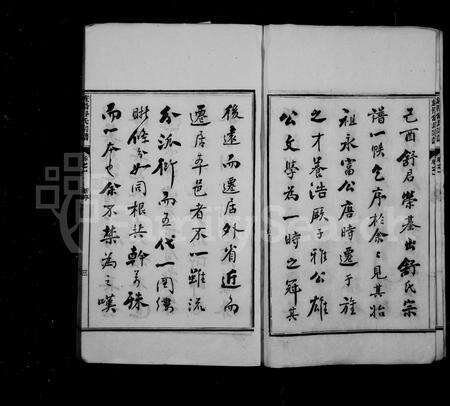 己酉舒君榮基出舒氏宗
譜一帙乞序於余余見其始
祖永富公唐時遷于旌
之才養浩厥子雅公雄
公文學為一時之冠其
後遠而遷居外省近而
遷居本邑者不一雖流
分派衍而五代一圖縷
晰條分如同根共幹萬殊
而一本也余不禁為之嘆
FamilySearch